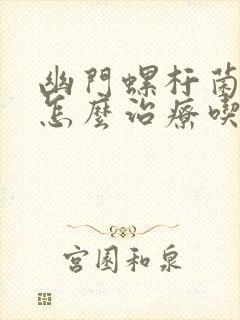 幽門螺杆菌
怎麼治療喫
宮園和泉